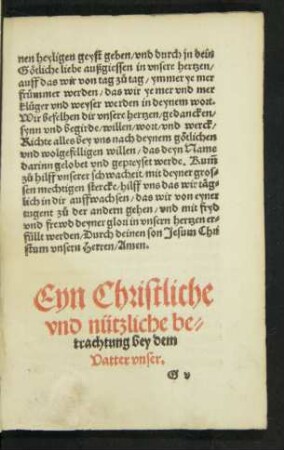 nen heyligen geyst geben/vnd durch jn dein
Götliche liebe außgiessen in vnsere hertzen/
auff das wir von tag zů tag/ ymmer ye mer
frümmer werden/das wir ye mer vnd mer
klüger vnd weyser werden in deynem wort.
Wir befelhen dir vnsere hertzen/gedancken/
synn vnd begirde/willen/wort/vnd werck/
Richte alles bey vns nach deynem götlichen
vnd wolgefelligen willen/das deyn Name
darinn gelobet vnd gepreyset werde. Kum̃
zů hilff vnserer schwacheit mit deyner gros-
sen mechtigen stercke/hilff vns das wir täg-
lich in dir auffwachsen/das wir von eyner
tugent zů der andern gehen/vnd mit fryd
vnd frewd deyner glori in vnsern hertzen er-
füllt werden/Durch deinen son Jesum Chri
stum vnsern Herren/Amen.
Eyn Christliche
vnd nützliche be-
trachtung bey dem
Vatter vnser.
G v